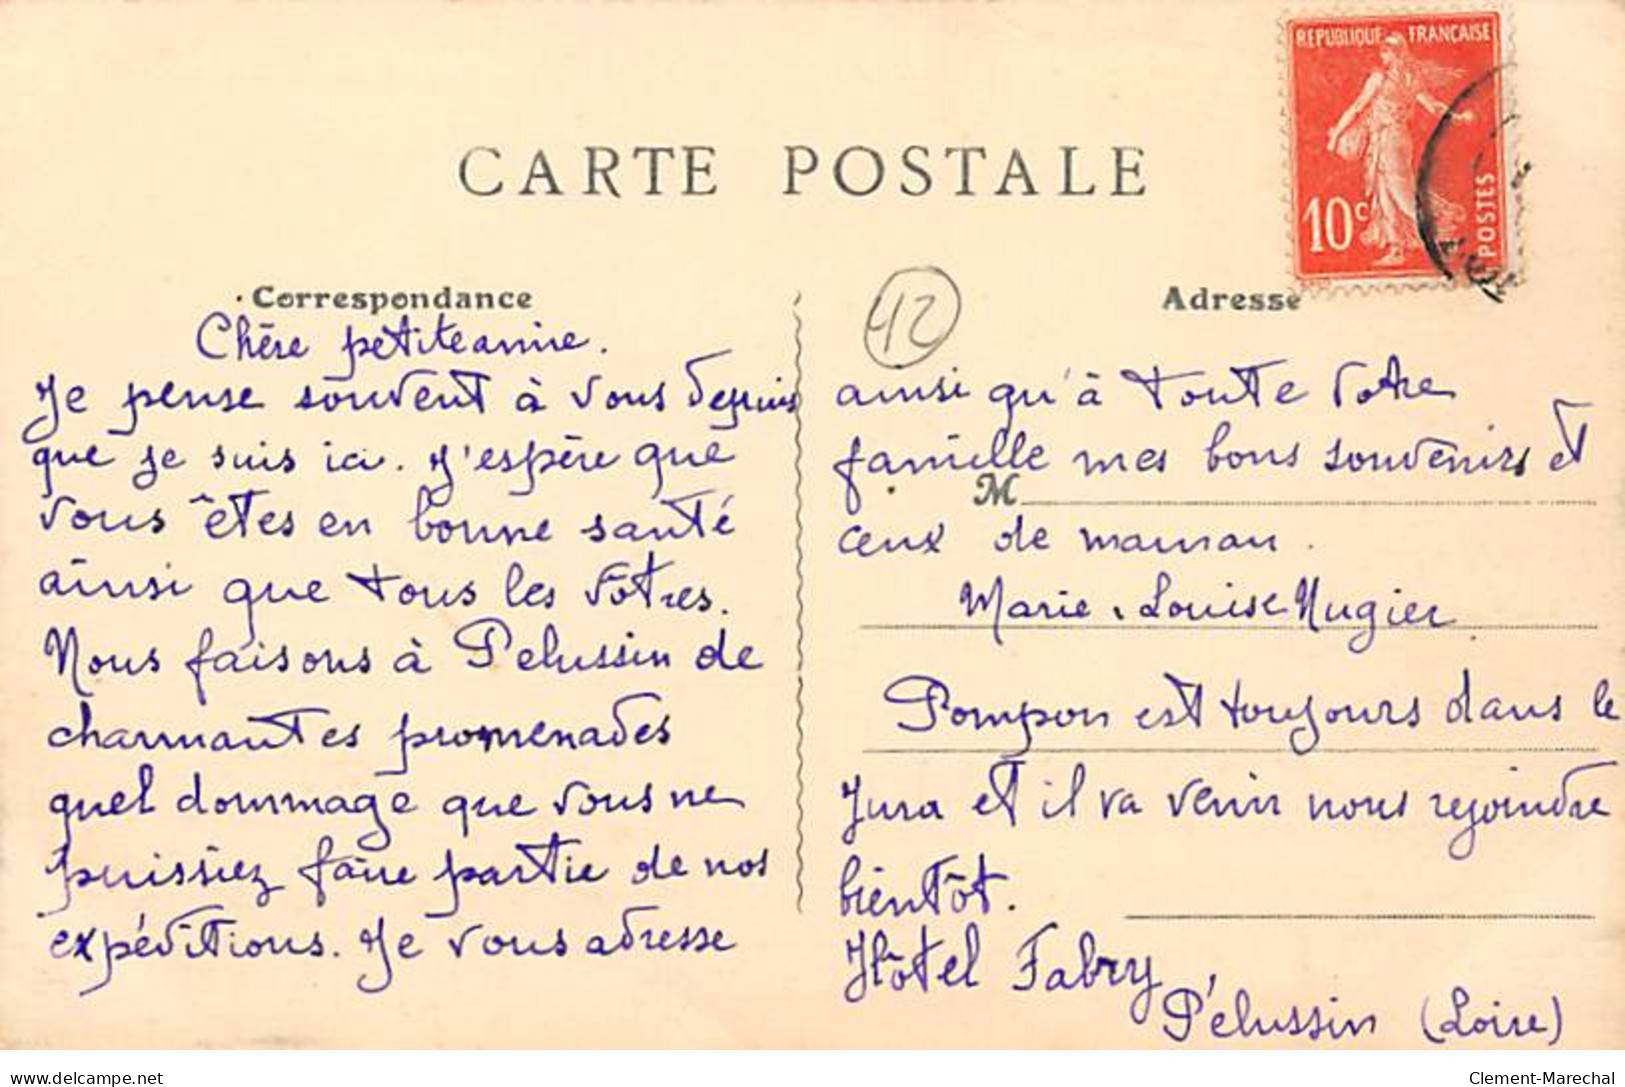 REPUBLIQUE FRANCAISE
10c
POSTES
CARTE POSTALE
Correspondance
Chère petite amie.
Je pense souvent à vous depuis
que je suis ici. J'espère que
vous êtes en bonne santé
ainsi que tous les vôtres.
Nous faisons à Pelussin de
charmantes promenades
quel dommage que vous ne
puissiez faire partie de nos
expéditions. Je vous adresse
42
Adresse
ainsi qu'à toute votre
famille mes bons souvenirs et
M
ceux de maman.
Marie-Louise Nugier
Pompon est toujours dans le
Jura et il va venir nous rejoindre
bientôt.
Hôtel Fabry
Pélussin (Loire)
delcampe.net
Clement-Marechal